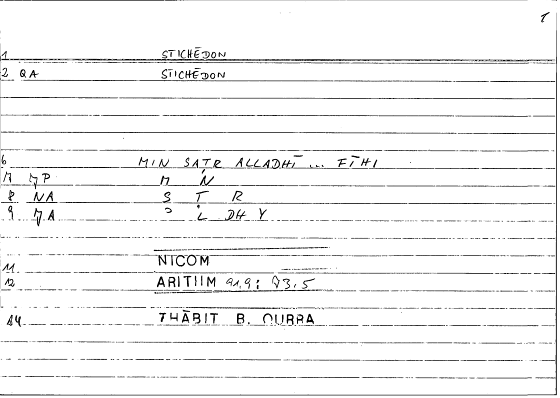 1 STICHĒDON
2 QA STICHĒDON
6 MIN SAṬR ALLADHĪ ... FĪHI
M N
8 NA S Ṭ R
9 L DH Y
11 NICOM
12 ARITIIM 91,9: 93.5
14 THĀBIT B. QURRA